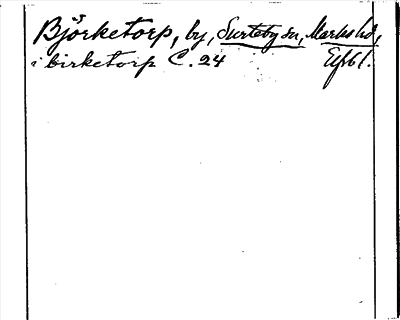 Björketorp, by, Surteby sn, Marks hd,
i birketorp C. 24 Elfsbl.